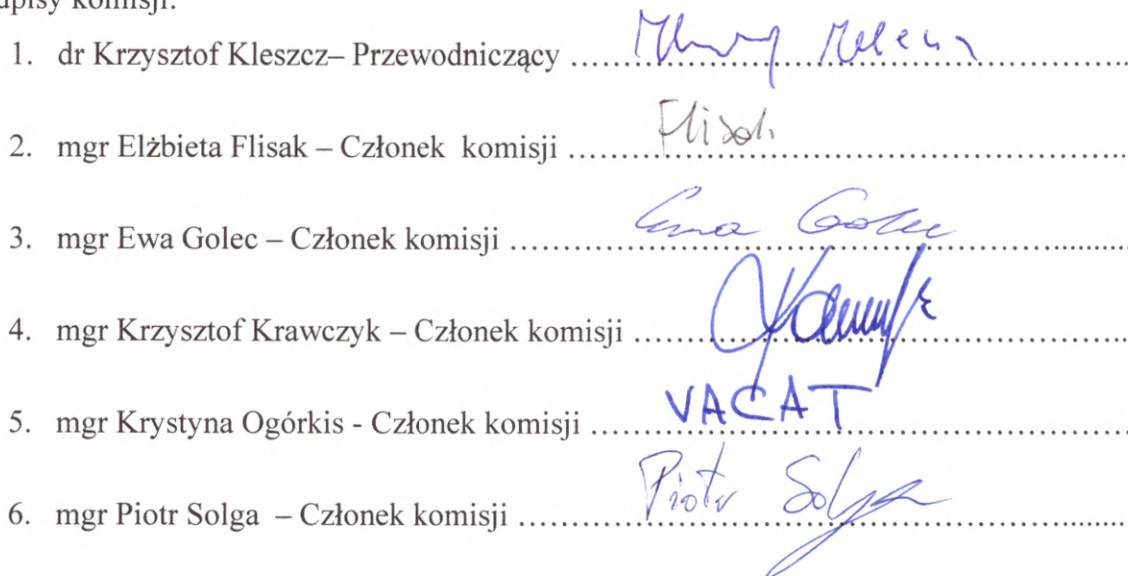 podpisy komisji:
1. dr Krzysztof Kleszcz– Przewodniczący ..........
2. mgr Elżbieta Flisak – Członek komisji .......... Flisak
3. mgr Ewa Golec – Członek komisji .......... Ewa Golec
4. mgr Krzysztof Krawczyk – Członek komisji ..........
5. mgr Krystyna Ogórkis - Członek komisji .......... VACAT
6. mgr Piotr Solga – Członek komisji .......... Piotr Solga